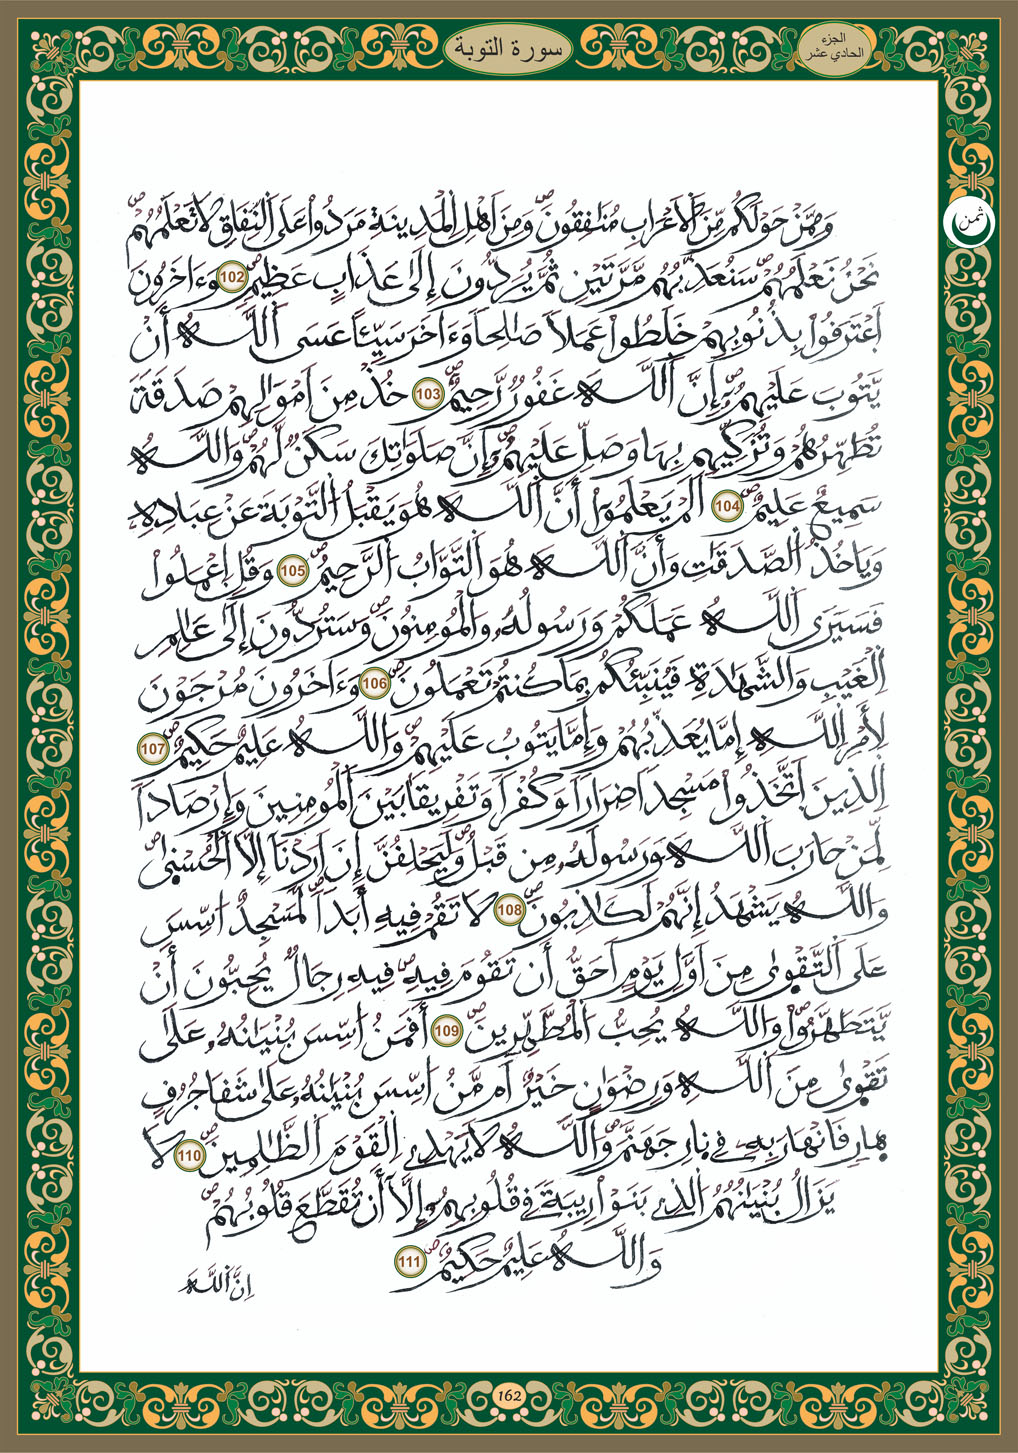 سورة التوبة
الجزء
الحادي عشر
ثمن
وَمِمَّنْ حَوْلَكُم مِّنَ اَلَاعْرَابِ مُنَٰفِقُونَ وَمِنَ اَهْلِ اِلْمَدِينَةِ مَرَدُواْ عَلَي اَلنِّفَاقِ لَا تَعْلَمُهُمْ
نَحْنُ نَعْلَمُهُمْ سَنُعَذِّبُهُم مَّرَّتَيْنِ ثُمَّ يُرَدُّونَ إِلَىٰ عَذَابٍ عَظِيمٍ 102 وَءَاخَرُونَ
اَعْتَرَفُواْ بِذُنُوبِهِمْ خَلَطُواْ عَمَلاً صَٰلِحاً وَءَاخَرَ سَيِّئاً عَسَى اَللَّهُ أَنْ
يَّتُوبَ عَلَيْهِمُ إِنَّ اَللَّهَ غَفُورٌ رَّحِيمٌ 103 خُذْ مِنَ اَمْوَٰلِهِمْ صَدَقَةً
تُطَهِّرُهُمْ وَتُزَكِّيهِم بِهَا وَصَلِّ عَلَيْهِمُ إِنَّ صَلَوَٰتِكَ سَكَنٌ لَّهُمْ وَاللَّهُ
سَمِيعٌ عَلِيمٌ 104 اَلَمْ يَعْلَمُواْ أَنَّ اَللَّهَ هُوَ يَقْبَلُ اُلتَّوْبَةَ عَنْ عِبَادِهِ
وَيَاخُذُ اُلصَّدَقَٰتِ وَأَنَّ اَللَّهَ هُوَ اَلتَّوَّابُ اُلرَّحِيمُ 105 وَقُلِ اِعْمَلُواْ
فَسَيَرَى اَللَّهُ عَمَلَكُمْ وَرَسُولُهُ وَالْمُومِنُونَ وَسَتُرَدُّونَ إِلَىٰ عَٰلِمِ
اِلْغَيْبِ وَالشَّهَٰدَةِ فَيُنَبِّئُكُم بِمَا كُنتُمْ تَعْمَلُونَ 106 وَءَاخَرُونَ مُرْجَوْنَ
لِأَمْرِ اِللَّهِ إِمَّا يُعَذِّبُهُمْ وَإِمَّا يَتُوبُ عَلَيْهِمْ وَاللَّهُ عَلِيمٌ حَكِيمٌ 107
اَلذِينَ اَتَّخَذُواْ مَسْجِداً ضِرَاراً وَكُفْراً وَتَفْرِيقاً بَيْنَ اَلْمُومِنِينَ وَإِرْصَاداً
لِّمَنْ حَارَبَ اَللَّهَ وَرَسُولَهُ مِن قَبْلُ وَلَيَحْلِفُنَّ إِنَ اَرَدْنَا إِلَّا اَلْحُسْنَىٰ
وَاللَّهُ يَشْهَدُ إِنَّهُمْ لَكَٰذِبُونَ 108 لَا تَقُمْ فِيهِ أَبَداً لَّمَسْجِدٌ اُسِّسَ
عَلَى اَلتَّقْوَىٰ مِنَ اَوَّلِ يَوْمٍ اَحَقُّ أَن تَقُومَ فِيهِ فِيهِ رِجَالٌ يُحِبُّونَ أَنْ
يَّتَطَهَّرُواْ وَاللَّهُ يُحِبُّ اُلْمُطَّهِّرِينَ 109 أَفَمَنُ اُسِّسَ بُنْيَٰنُهُ عَلَىٰ
تَقْوَىٰ مِنَ اَللَّهِ وَرِضْوَٰنٍ خَيْرٌ اَم مَّنُ اُسِّسَ بُنْيَٰنُهُ عَلَىٰ شَفَا جُرُفٍ
هِارٍ فَانْهَارَ بِهِ فِي نَارِ جَهَنَّمَ وَاللَّهُ لَا يَهْدِي اِلْقَوْمَ اَلظَّٰلِمِينَ 110 لَا
يَزَالُ بُنْيَٰنُهُمُ اُلذِي بَنَوْاْ رِيبَةً فِي قُلُوبِهِمُ إِلَّا أَن تُقَطَّعَ قُلُوبُهُمْ
وَاللَّهُ عَلِيمٌ حَكِيمٌ 111
اِنَّ اَللَّهَ
162